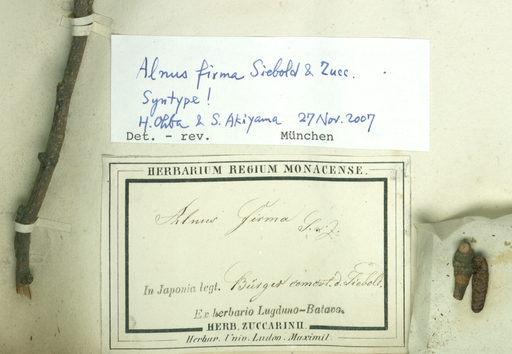 Alnus firma Siebold & Zucc.
Syntype!
H. Ohba & S. Akiyama 27 Nov. 2007
Det. - rev. München
HERBARIUM REGIUM MONACENSE.
Alnus firma S. & Z.
In Japonia legt. Bürger comm. d. Siebold.
Ex herbario Lugduno-Batavo.
HERB. ZUCCARINII.
Herbar. Univ. Ludov. Maximil.